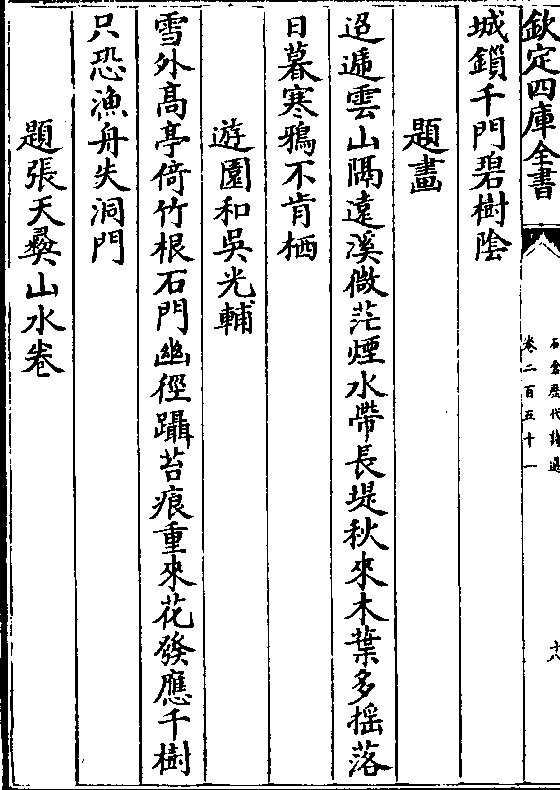 欽定四庫全書
石倉歷代詩選
卷二百五十一
十八
城鎖千門碧樹陰
題畫
迢遞雲山隔遠溪微茫煙水帶長堤秋來木葉多揺落
日暮寒鴉不肯栖
遊園和吳光輔
雪外高亭倚竹根石門幽徑躡苔痕重來花發應千樹
只恐漁舟失洞門
題張天彛山水卷